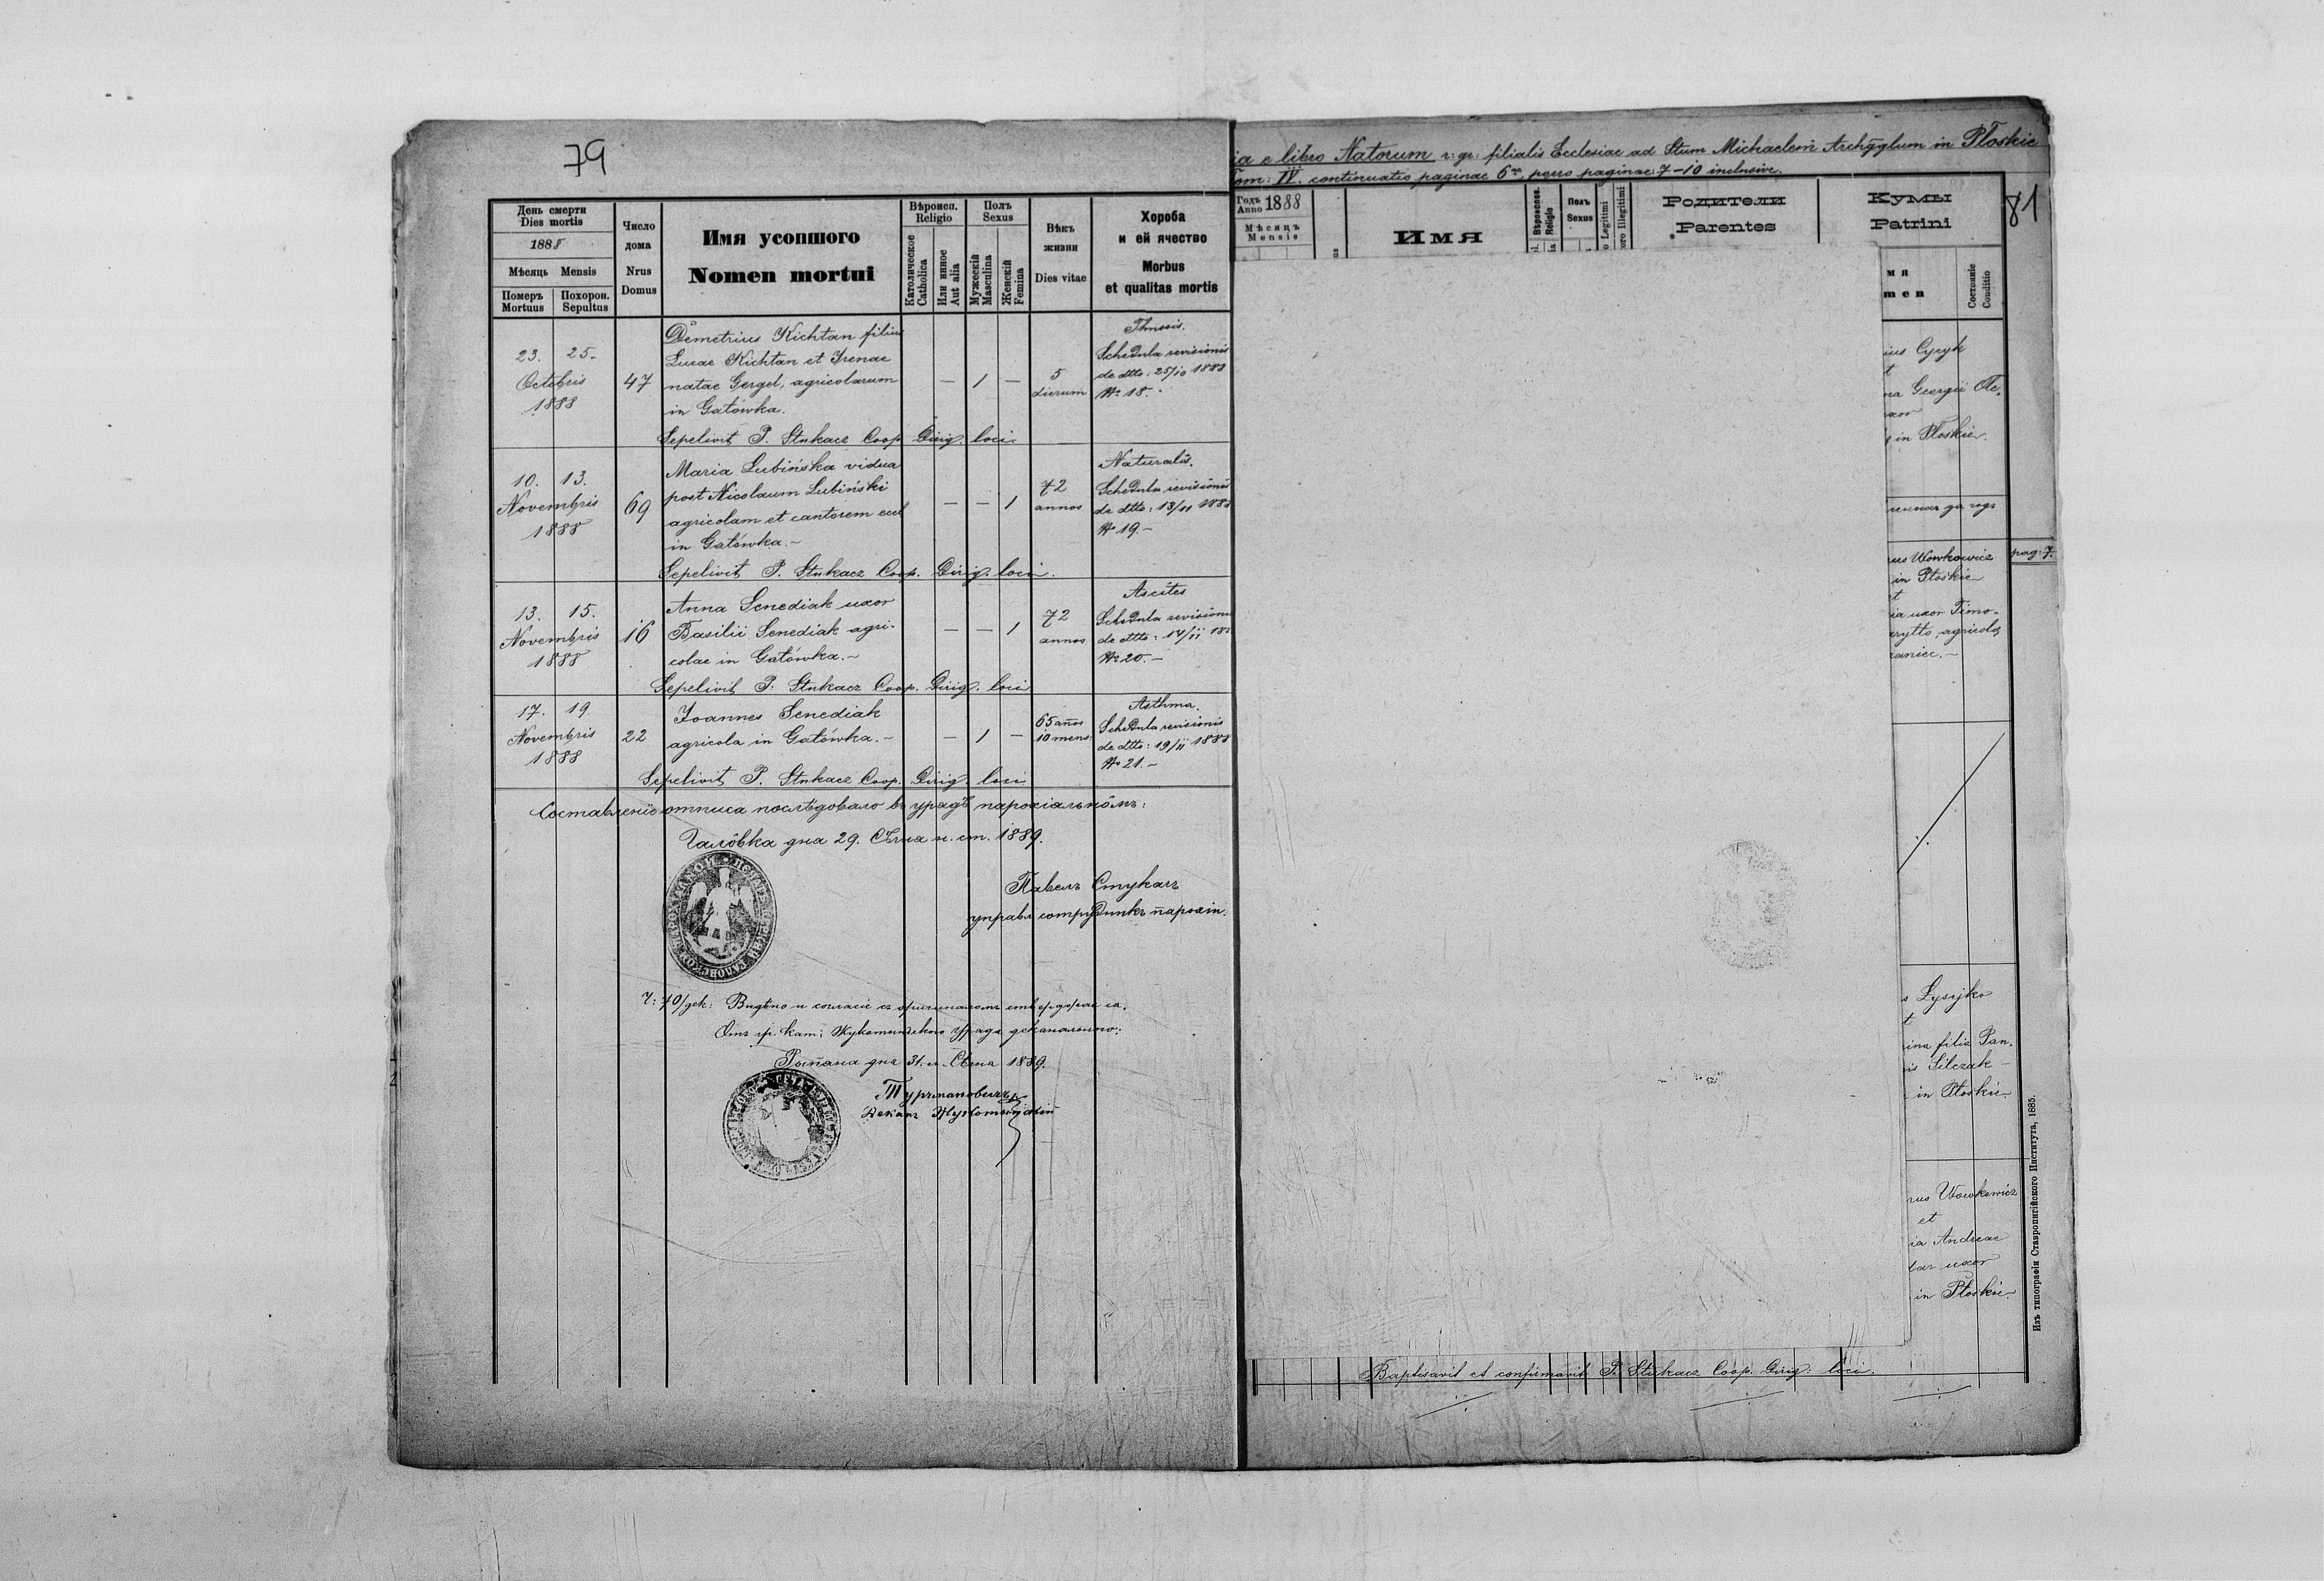 79
День смерти
Dies mortis
1888
Мѣсяць Mensis
Померъ Похорон.
Mortuus Sepultus
Число
дома
Nrus
Domus
Имя усопшого
Nomen mortui
Вѣроисп.
Religio
Католическое
Catholica
Или инное
Aut alia
Полъ
Sexus
Мужескій
Masculina
Женскій
Femina
Вѣкъ
жизни
Dies vitae
Хороба
и ей ячество
Morbus
et qualitas mortis
23. 25.
Octobris
1888
47
Demetrius Kichtan filius
Lucae Kichtan et Irenae
natae Gergel, agricolarum
in Gatówka.
— 1 —
5
dierum
Schedula revisionis
de dtto: 25/10 1888
No 18.
Sepelivit P. Stukacz Coop. Dirig. loci.
10. 13.
Novembris
1888
69
Maria Lubińska vidua
post Nicolaum Lubiński
agricolam et cantorem eccl
in Gatówka.–
— — 1
72
annos
Naturalis.
Schedula revisionis
de dtto: 13/11 1888
No 19.–
Sepelivit P. Stukacz Coop. Dirig. loci.
13. 15.
Novembris
1888
16
Anna Senediak uxor
Basilii Senediak agri-
colae in Gatówka.–
— — 1
72
annos
Ascites
Schedula revisionis
de dtto: 14/11 188
No 20.–
Sepelivit P. Stukacz Coop. Dirig. loci
17. 19
Novembris
1888
22
Joannes Senediak
agricola in Gatówka.–
— 1 —
65 años
10 mens.
Asthma.
Schedula revisionis
de dtto: 19/11 1888
No 21.–
Sepelivit P. Stukacz Coop. Dirig. loci
Составленіе отписа послѣдовало въ урядѣ парохіальнôмъ:
Галôвка дна 29. Сѣчна н. ст. 1889.
Павелъ Стукачъ
управл. сотрудникъ парохіи.
Ч: 40/дек: Видѣно и согласіе съ оригиналомъствердрае ся.
Отъ гр. кат: Жукотинского Уряда деканального:
дна 31. н. Сѣчна 1889.
Турчмановичъ
Деканъ Жукотинскій
ia e libro Natorum r: gr: filialis Ecclesiae ad Stum Michaelem Archgglum in Płoskie
Tom: IV. continuatio paginae 6ae, porro paginae: 7–10 inclusive.
81
Годъ
Anno 1888
Мѣсяцъ
Mensis
Имя
Вѣроисповѣ.
Religio
Полъ
Sexus
o Legitimi
oro Illegitimi
Родители
Parentes
Кумы
Patrini
мя
men
Состояніе
Conditio
ius Cycyk
t
na Georgii Ole.
xor
in Płoskie.
rus Wowkowicz
in Płoskie
t
ia uxor Timo-
arytto, agricola
aniec.–
pag: 7.
s Lysyjko
t
ina filia Pan.
is Silczak –
in Płoskie.
rus Wowkowicz
et
ia Andreae
tar uxor
in Płoskie.
Изъ типографіи Ставропигійского Института, 1885.
Baptisavit et confirmavit P. Stukacz Coop. Dirig: loci.